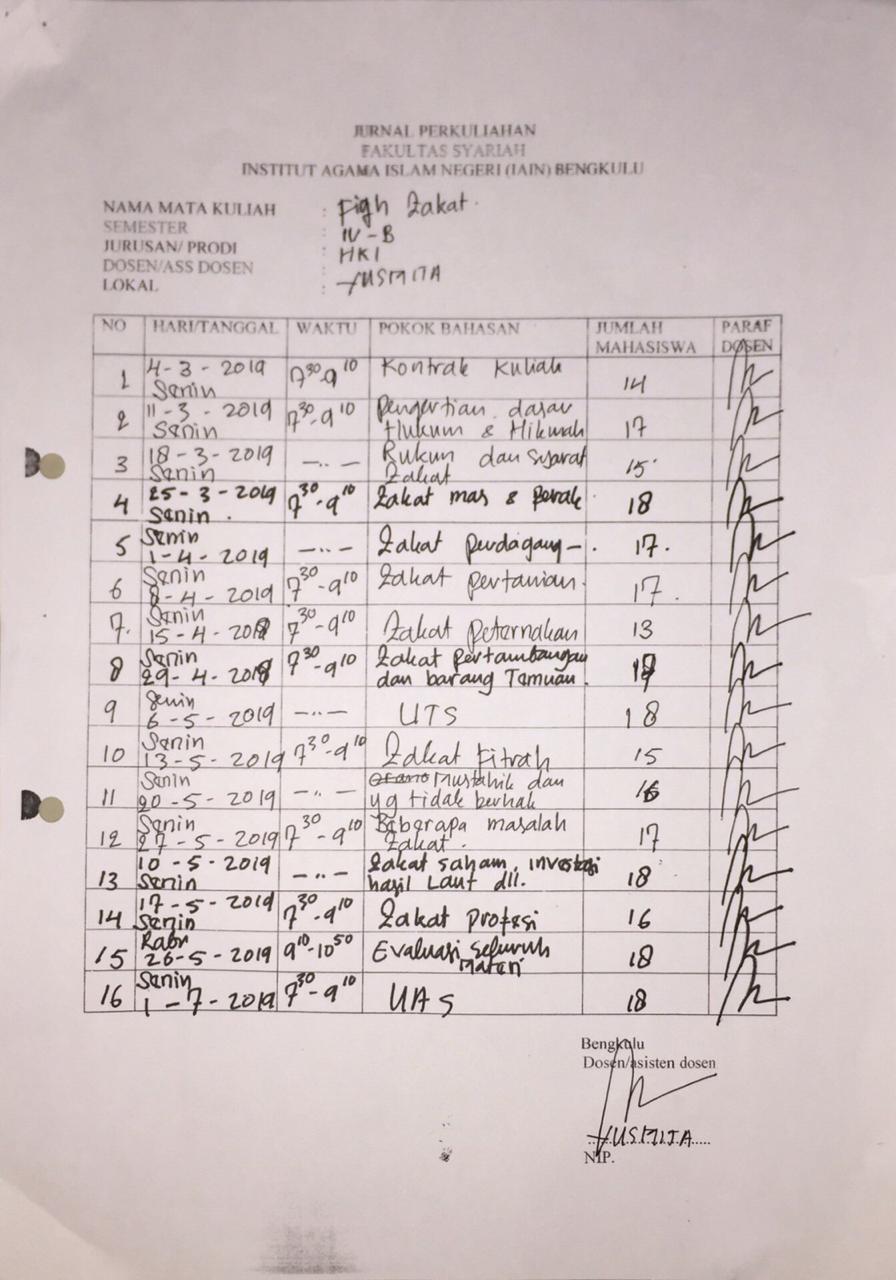 JURNAL PERKULIAHAN
FAKULTAS SYARIAH
INSTITUT AGAMA ISLAM NEGERI (IAIN) BENGKULU
NAMA MATA KULIAH : Fiqh Zakat.
SEMESTER : IV-B
JURUSAN/ PRODI : HKI
DOSEN/ASS DOSEN : YUSMITA
LOKAL :
NO HARI/TANGGAL WAKTU POKOK BAHASAN JUMLAH MAHASISWA PARAF DOSEN
1 4-3-2019 Senin 7³⁰-9¹⁰ Kontrak Kuliah 14
2 11-3-2019 Senin 7³⁰-9¹⁰ Pengertian, dasar Hukum & Hikmah 17
3 18-3-2019 Senin -..- Rukun dan syarat Zakat 15
4 25-3-2019 Senin. 7³⁰-9¹⁰ Zakat mas & perak 18
5 Senin 1-4-2019 -..- Zakat perdagang-. 17.
6 Senin 8-4-2019 7³⁰-9¹⁰ Zakat pertanian. 17.
7. Senin 15-4-2019 7³⁰-9¹⁰ Zakat Peternakan 13
8 Senin 29-4-2019 7³⁰-9¹⁰ Zakat pertambangan dan barang Temuan.
9 Senin 6-5-2019 -..- UTS 18
10 Senin 13-5-2019 7³⁰-9¹⁰ Zakat Fitrah 15
11 Senin 20-5-2019 -..- Mustahik dan yg tidak berhak 16
12 Senin 27-5-2019 7³⁰-9¹⁰ Beberapa masalah Zakat. 17
13 10-5-2019 Senin -..- Zakat saham, investasi hasil Laut dll. 18
14 17-5-2019 Senin 7³⁰-9¹⁰ Zakat profesi 16
15 Rabu 26-5-2019 9¹⁰-10⁵⁰ Evaluasi seluruh Materi 18
16 Senin 1-7-2019 7³⁰-9¹⁰ UAS 18
Bengkulu
Dosen/asisten dosen
YUSMITA
NIP.